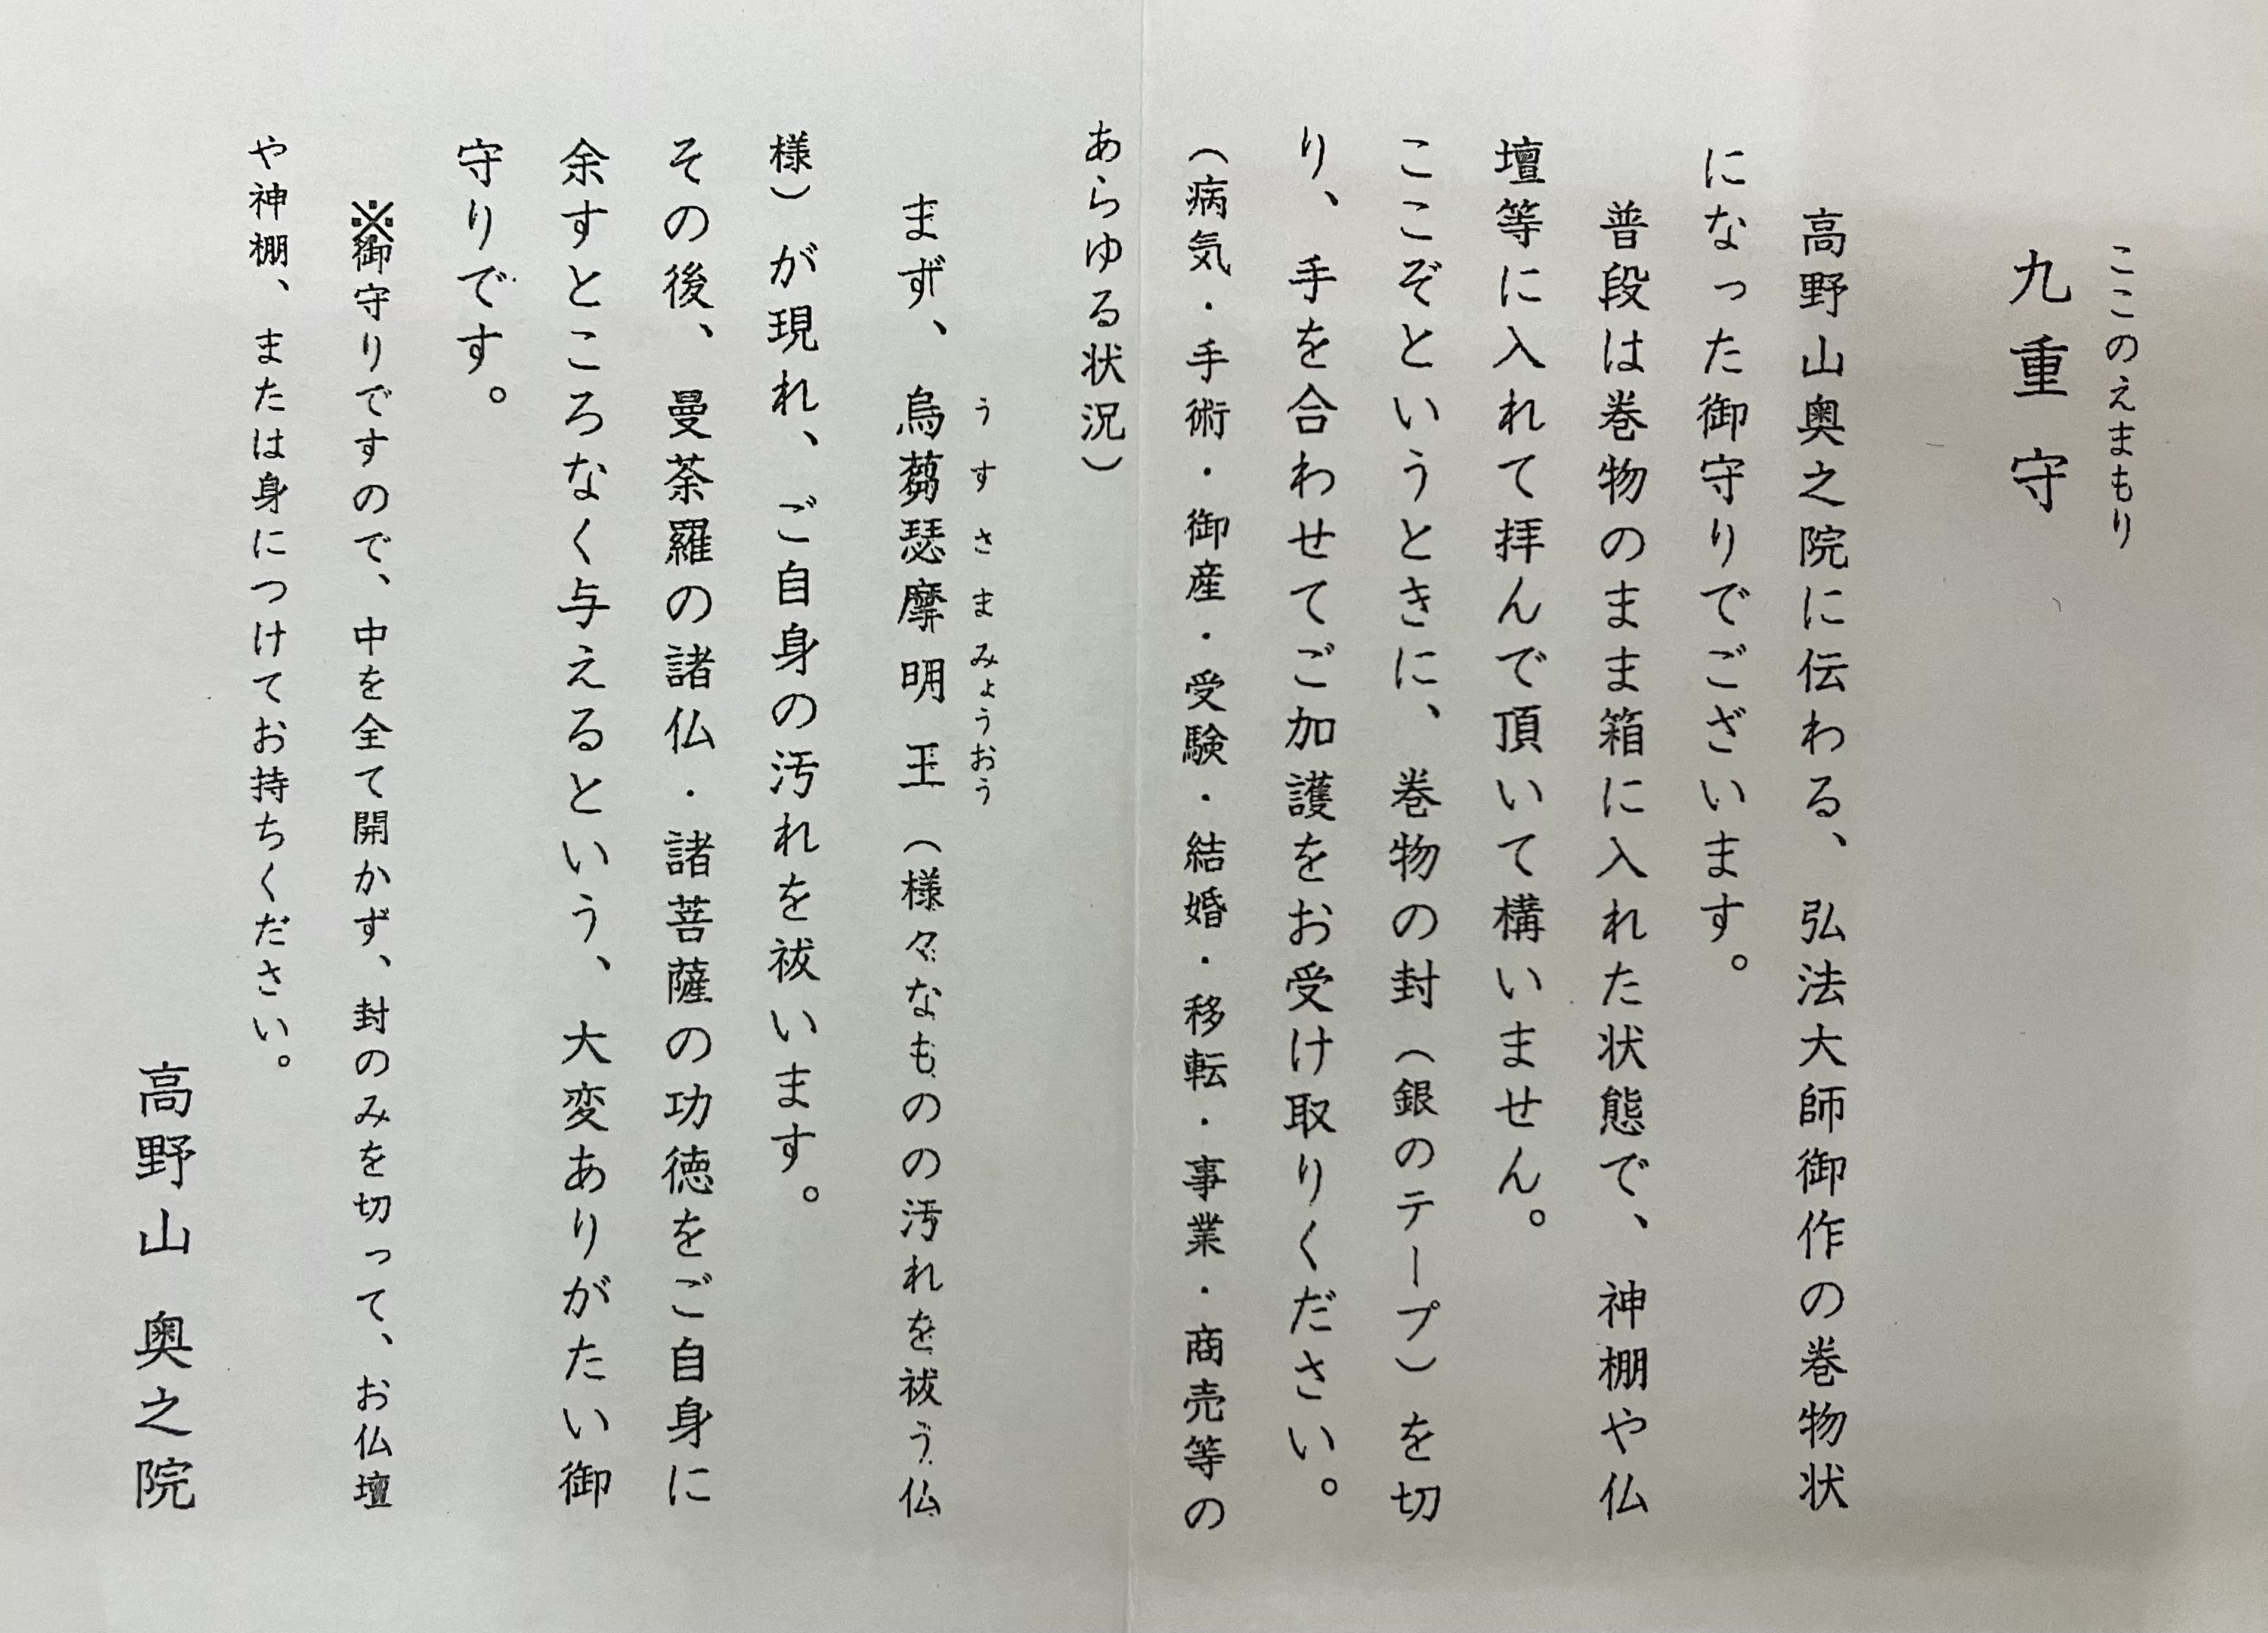 ここのえまもり
九重守
高野山奥之院に伝わる、弘法大師御作の巻物状
になった御守りでございます。
普段は巻物のまま箱に入れた状態で、神棚や仏
壇等に入れて拝んで頂いて構いません。
ここぞというときに、巻物の封（銀のテープ）を切
り、手を合わせてご加護をお受け取りください。
（病気・手術・御産・受験・結婚・移転・事業・商売等の
あらゆる状況）
うすさまみょうおう
まず、烏蒭瑟摩明王（様々なものの汚れを祓う仏
様）が現れ、ご自身の汚れを祓います。
その後、曼荼羅の諸仏・諸菩薩の功徳をご自身に
余すところなく与えるという、大変ありがたい御
守りです。
※御守りですので、中を全て開かず、封のみを切って、お仏壇
や神棚、または身につけてお持ちください。
高野山 奥之院